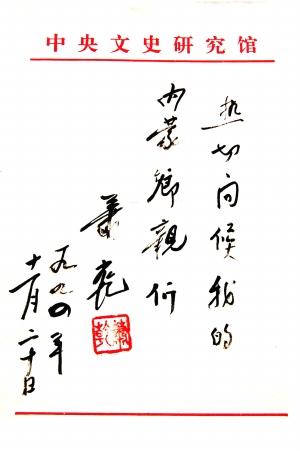 中央文史研究馆
热切问候我的
内蒙鄉親们
萧乾
一九九〇年
十一月二十日